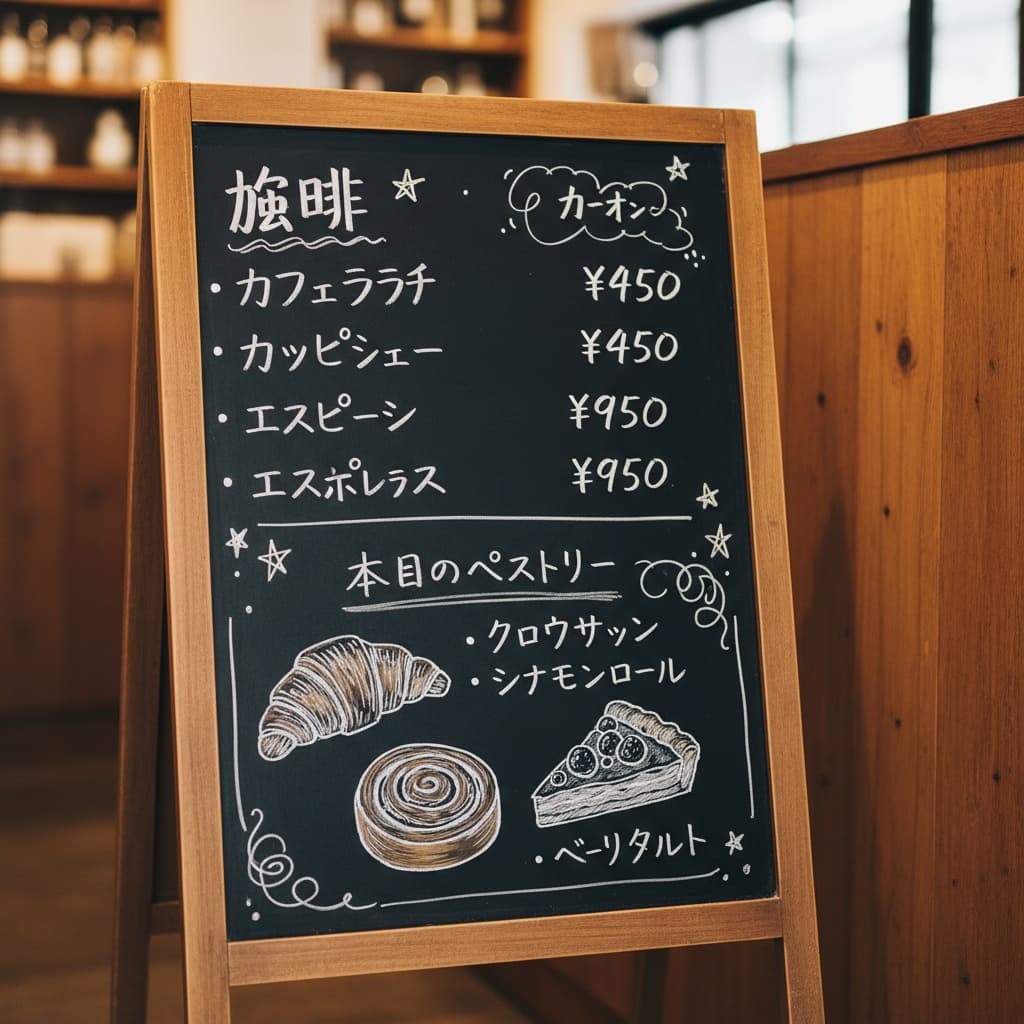 啡
カーオン
・カフェラララチ ¥450
・カッピシェー ¥450
・エスピーシ ¥950
・エスポレラス ¥950
本目のペストリー
・クロウサッン
・シナモンロール
・ベーリタルト